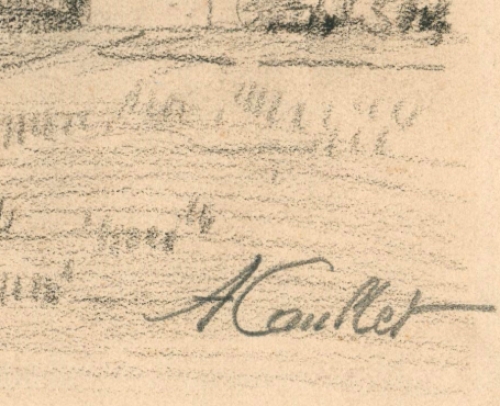 A Caullet